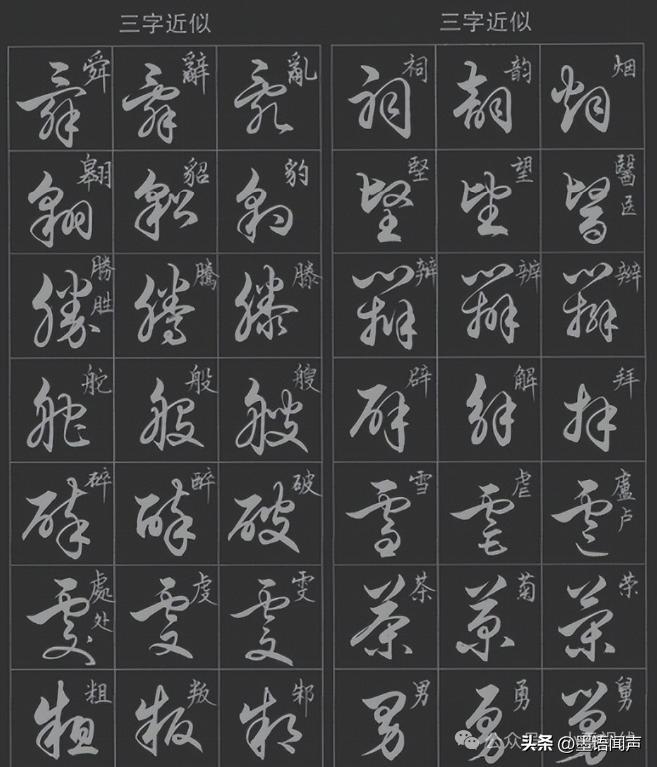 三字近似
舜 辭 亂
翱 貂 豹
勝 胜 騰 滕
舵 般 艘
碎 醉 破
處 处 虔 雯
粗 叛 邾
三字近似
祠 韵 烟
堅 望 醫 医
辨
辟 解 拜
雪 虐 盧 卢
茶 菊 荣
男 勇 舅
头条 @墨语闻声